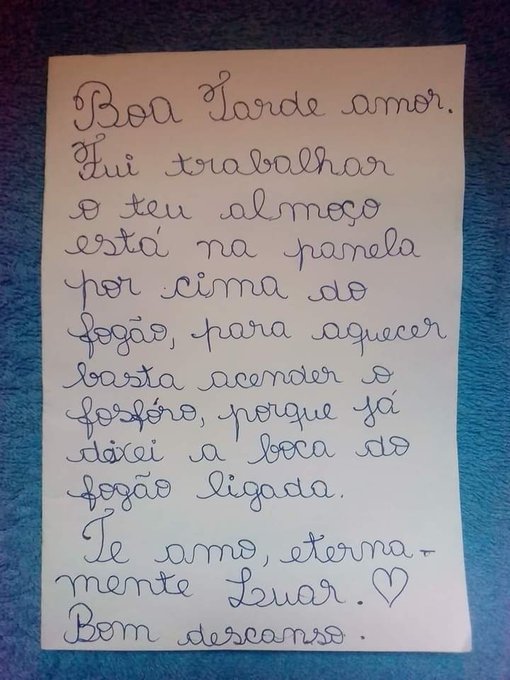 Boa Tarde amor.
Fui trabalhar
o teu almoço
está na panela
por cima do
fogão, para aquecer
basta acender o
fosfóro, porque já
deixei a boca do
fogão ligada.
Te amo, eterna-
mente Luar. ♡
Bom descanso.